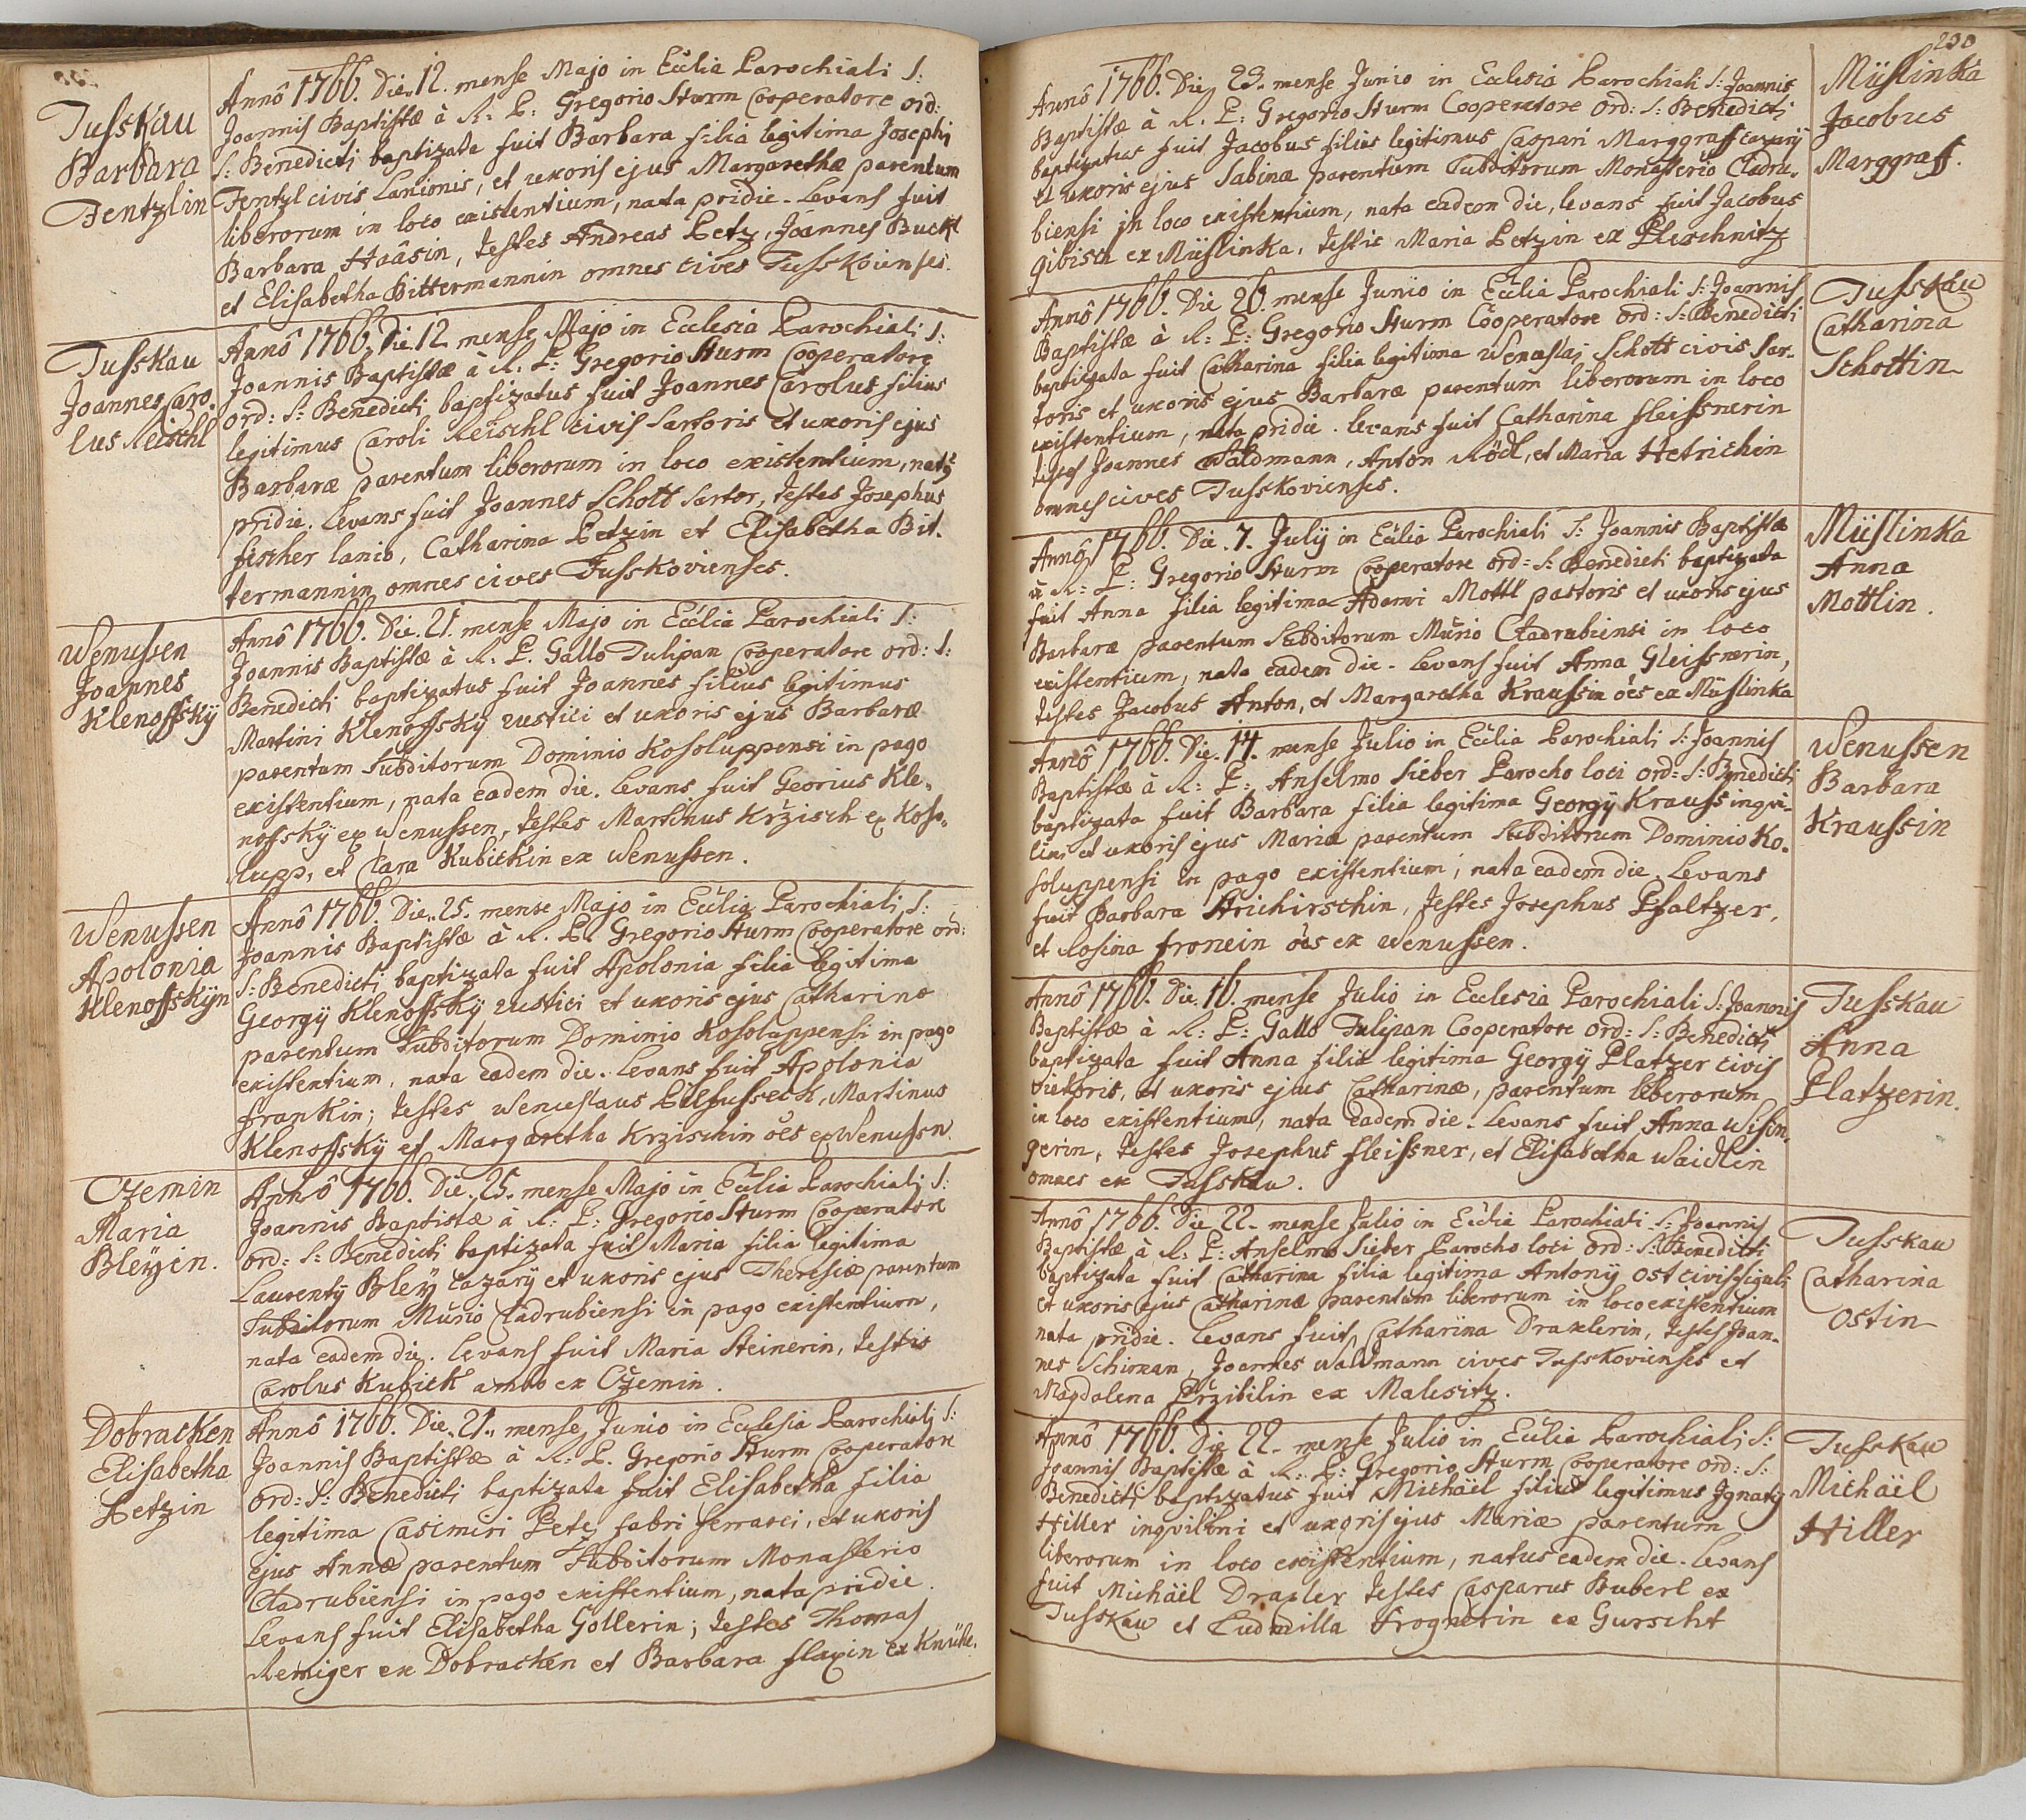 Tusskau
Barbara
Fentzlin
Annô 1766. Die 12. mense Majo in Ecclia Parochiali S:
Joannis Baptistæ à R. P: Gregorio Sturm Cooperatore ord:
S: Benedicti baptizata fuit Barbara filia legitima Josephi
Fentzl civis Lanionis, et uxoris ejus Margarethæ parentum
liberorum in loco existentium, nata pridie. Levans fuit
Barbara Haâsin, testes Andreas Petz, Joannes Buckl
et Elisabetha Bittermannin omnes cives Tusskovienses.
Tusskau
Joannes Caro-
lus Reischl
Annô 1766. Die 12. mense Majo in Ecclesia Parochiali S:
Joannis Baptistæ à R. P: Gregorio Sturm Cooperatore
ord: S: Benedicti baptizatus fuit Joannes Carolus filius
legitimus Caroli Reischl civis Sartoris et uxoris ejus
Barbaræ parentum liberorum in loco existentium, natq
pridie. Levans fuit Joannes Schott Sartor, testes Josephus
fischer lanio, Catharina Petzin et Elisabetha Bit-
termannin omnes cives Tusskovienses.
Wenussen
Joannes
Klenoffskÿ
Annô 1766. Die. 21. mense Majo in Ecclia Parochiali S:
Joannis Baptistæ à R. P. Gallo Tulipan Cooperatore ord: S:
Benedicti baptizatus fuit Joannes filius legitimus
Martini Klenoffskÿ rustici et uxoris ejus Barbaræ
parentum Subditorum Dominio Kosoluppensi in pago
existentium, nata eadem die. Levans fuit Georius Kle-
noffskÿ ex Wenussen, testes Martinus Kržisch ex Koso-
lupp, et Clara Kubickin ex Wenussen.
Wenussen
Apolonia
Klenoffskÿn
Annô 1766. Die. 25. mense Majo in Ecclia Parochiali S:
Joannis Baptistæ à R. P. Gregorio Sturm Cooperatore ord:
S: Benedicti baptizata fuit Apolonia filia legitima
Georgÿ Klenoffskÿ rustici et uxoris ejus Catharinæ
parentum Subditorum Dominio Kosoluppensi in pago
existentium, nata eadem die. Levans fuit Apolonia
frankin; testes Wenceslaus Pilfusseck, Martinus
Klenoffskÿ et Margaretha Krzischin ões ex Wenussn.
Czemin
Maria
Bleÿin.
Annô 1766. Die. 25. mense Majo in Ecclia Parochiali S:
Joannis Baptistæ à R: P: Gregorio Sturm Cooperatore
ord: S: Benedicti baptizata fuit Maria filia legitima
Laurentÿ Bleÿ cazarÿ et uxoris ejus Theresiæ parentum
Subditorum Mûrio Cladrubiensi in pago existentium,
nata eadem die. Levans fuit Maria Steinerin, testis
Carolus Kubick ambo ex Czemin.
Dobracken
Elisabetha
Petzin
Annô 1766. Die. 21. mense Junio in Ecclesia Parochiali S:
Joannis Baptistæ à R: P. Gregorio Sturm Cooperatore
ord: S: Benedicti baptizata fuit Elisabetha filia
legitima Casimiri Petz fabri ferrarei, et uxoris
ejus Annæ parentum Subditorum Monasterio
Cladrubiensi in pago existentium, nata pridie.
Levans fuit Elisabetha Göllerin; testes Thomas
Remiger ex Dobracken et Barbara flaxin ex Knühe.
230
Annô 1766. Die 23. mense Junio in Ecclesia Parochiali S: Joannis
Baptistæ à R. P: Gregorio Sturm Cooperatore ord: S: Benedicti
baptizatus fuit Jacobus filius legitimus Caspari Marggraff cazarÿ
et uxoris ejus Sabinæ parentum Subditorum Monasterio Cladru-
biensi in loco existentium, nata eadem die, levans fuit Jacobus
Gibisch ex Müslinka, testis Maria Petzin ex Pleschnitz
Müslinka
Jacobus
Marggraff.
Annô 1766. Die 26. mense Junio in Ecclia Parochiali S: Joannis
Baptistæ à R: P: Gregorio Sturm Cooperatore ord: S: Benedicti
baptizata fuit Catharina filia legitima Wenceslai Schott civis Sar-
toris et uxoris ejus Barbaræ parentum liberorum in loco
existentium, nata pridie. levans fuit Catharina fleissnerin
testes Joannes Waldmann, Anton Rödl, et Maria Hetrichin
omnes cives Tusskovienses.
Tusskau
Catharina
Schottin
Annô 1766. Die. 7. Julÿ in Ecclia Parochiali S: Joannis Baptistæ
à R: P: Gregorio Sturm Cooperatore ord: S: Benedicti baptizata
fuit Anna filia legitima Adami Mottl pastoris et uxoris ejus
Barbaræ parentum Subditorum Mûrio Cladrubiensi in loco
existentium, nata eadem die. Levans fuit Anna Gleissnerin,
testes Jacobus Anton, et Margaretha Kraussin ões ex Müslinka
Müslinka
Anna
Mottlin.
Annô 1766. Die. 14. mense Julio in Ecclia Parochiali S: Joannis
Baptistæ à R: P: Anselmo Sieber Parocho loci ord: S: Benedicti
baptizata fuit Barbara filia legitima Georgÿ Krauss inqui-
lini et uxoris ejus Mariæ parentum Subditorum Dominio Ko-
soluppensi in pago existentium, nata eadem die. Levans
fuit Barbara Strichirschin, testes Josephus Pfaltzer,
et Rosina fronein ões ex Wenussen.
Wenussen
Barbara
Kraussin
Annô 1766. Die. 16. mense Julio in Ecclesia Parochiali S: Joannis
Baptistæ à R: P: Gallo Tulipan Cooperatore ord: S: Benedicti
baptizata fuit Anna filia legitima Georgÿ Platzer civis
Vietoris, et uxoris ejus Catharinæ, parentum liberorum
in loco existentium, nata eadem die. Levans fuit Anna Wisin-
gerin, testes Josephus fleissner, et Elisabetha Waidlin
omnes ex Tusskau.
Tusskau
Anna
Platzerin.
Annô 1766. Die 22. mense Julio in Ecclia Parochiali S: Joannis
Baptistæ à R: P: Anselmo Sieber Parocho loci ord: S: Benedicti
baptizata fuit Catharina filia legitima Antonÿ Ost civis figuli
et uxoris ejus Catharinæ parentum liberorum in loco existentium
nata pridie. levans fuit Catharina Draxlerin, testes Joan-
nes Schiman, Joannes Waldmann cives Tusskovienses et
Magdalena Pržibilin ex Malesitz.
Tusskau
Catharina
Ostin
Annô 1766. Die 22. mense Julio in Ecclia Parochiali S:
Joannis Baptistæ à R: P: Gregorio Sturm Cooperatore ord: S:
Benedicti baptizatus fuit Michäel filius legitimus Ignatÿ
Hiller inqvilini et uxoris ejus Mariæ parentum
liberorum in loco existentium, natus eadem die. Levans
fuit Michäel Draxler testes Casparus Buberl ex
Tusskau et Ludmilla Frognerin ex Gurscht
Tusskau
Michäel
Hiller